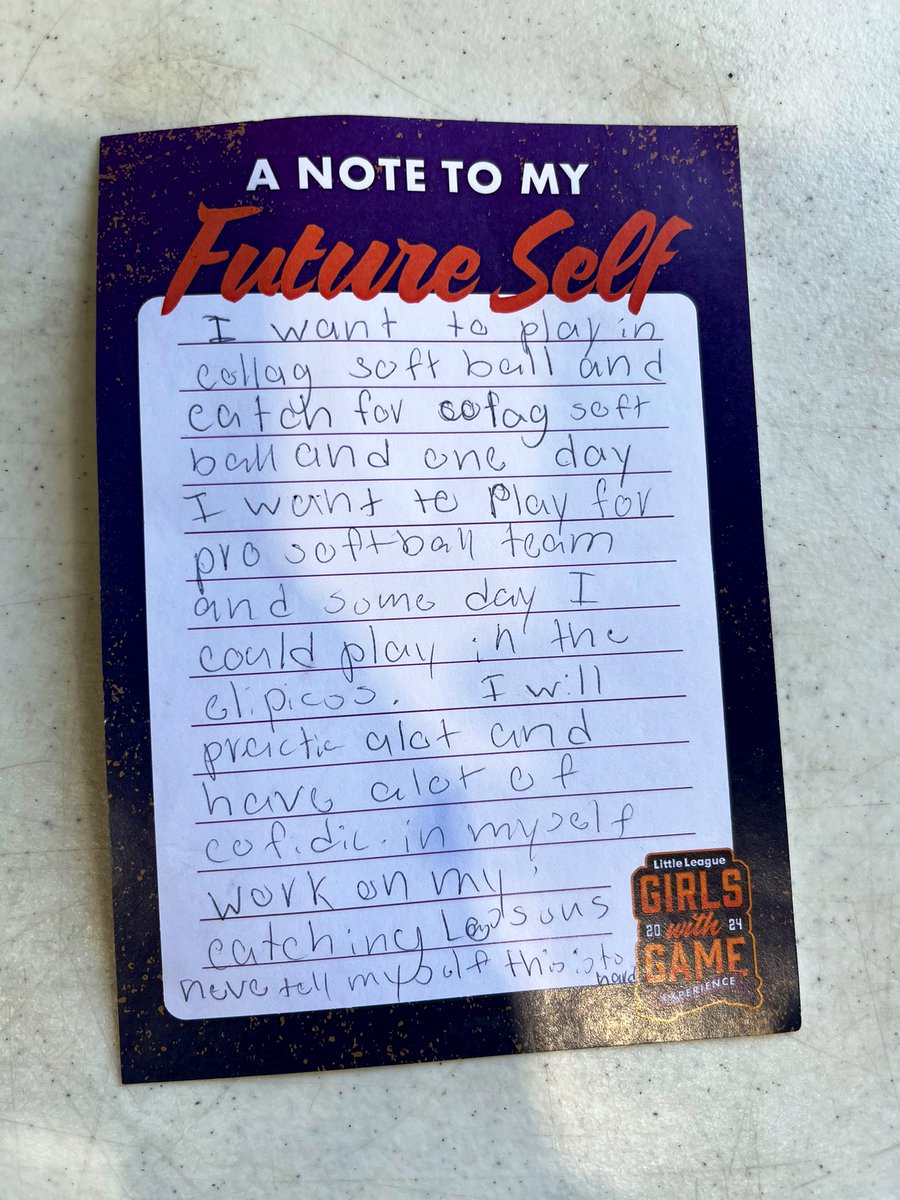 A NOTE TO MY
Future Self
I want to play in
collag soft ball and
catch for colag soft
ball and one day
I want to Play for
pro softball team
and some day I
could play in the
elipicos. I will
practic alot and
have alot of
cofidic. in myself
work on my
catching
neve tell myself this is to
hard
Little League
GIRLS
20 with 24
GAME
EXPERIENCE